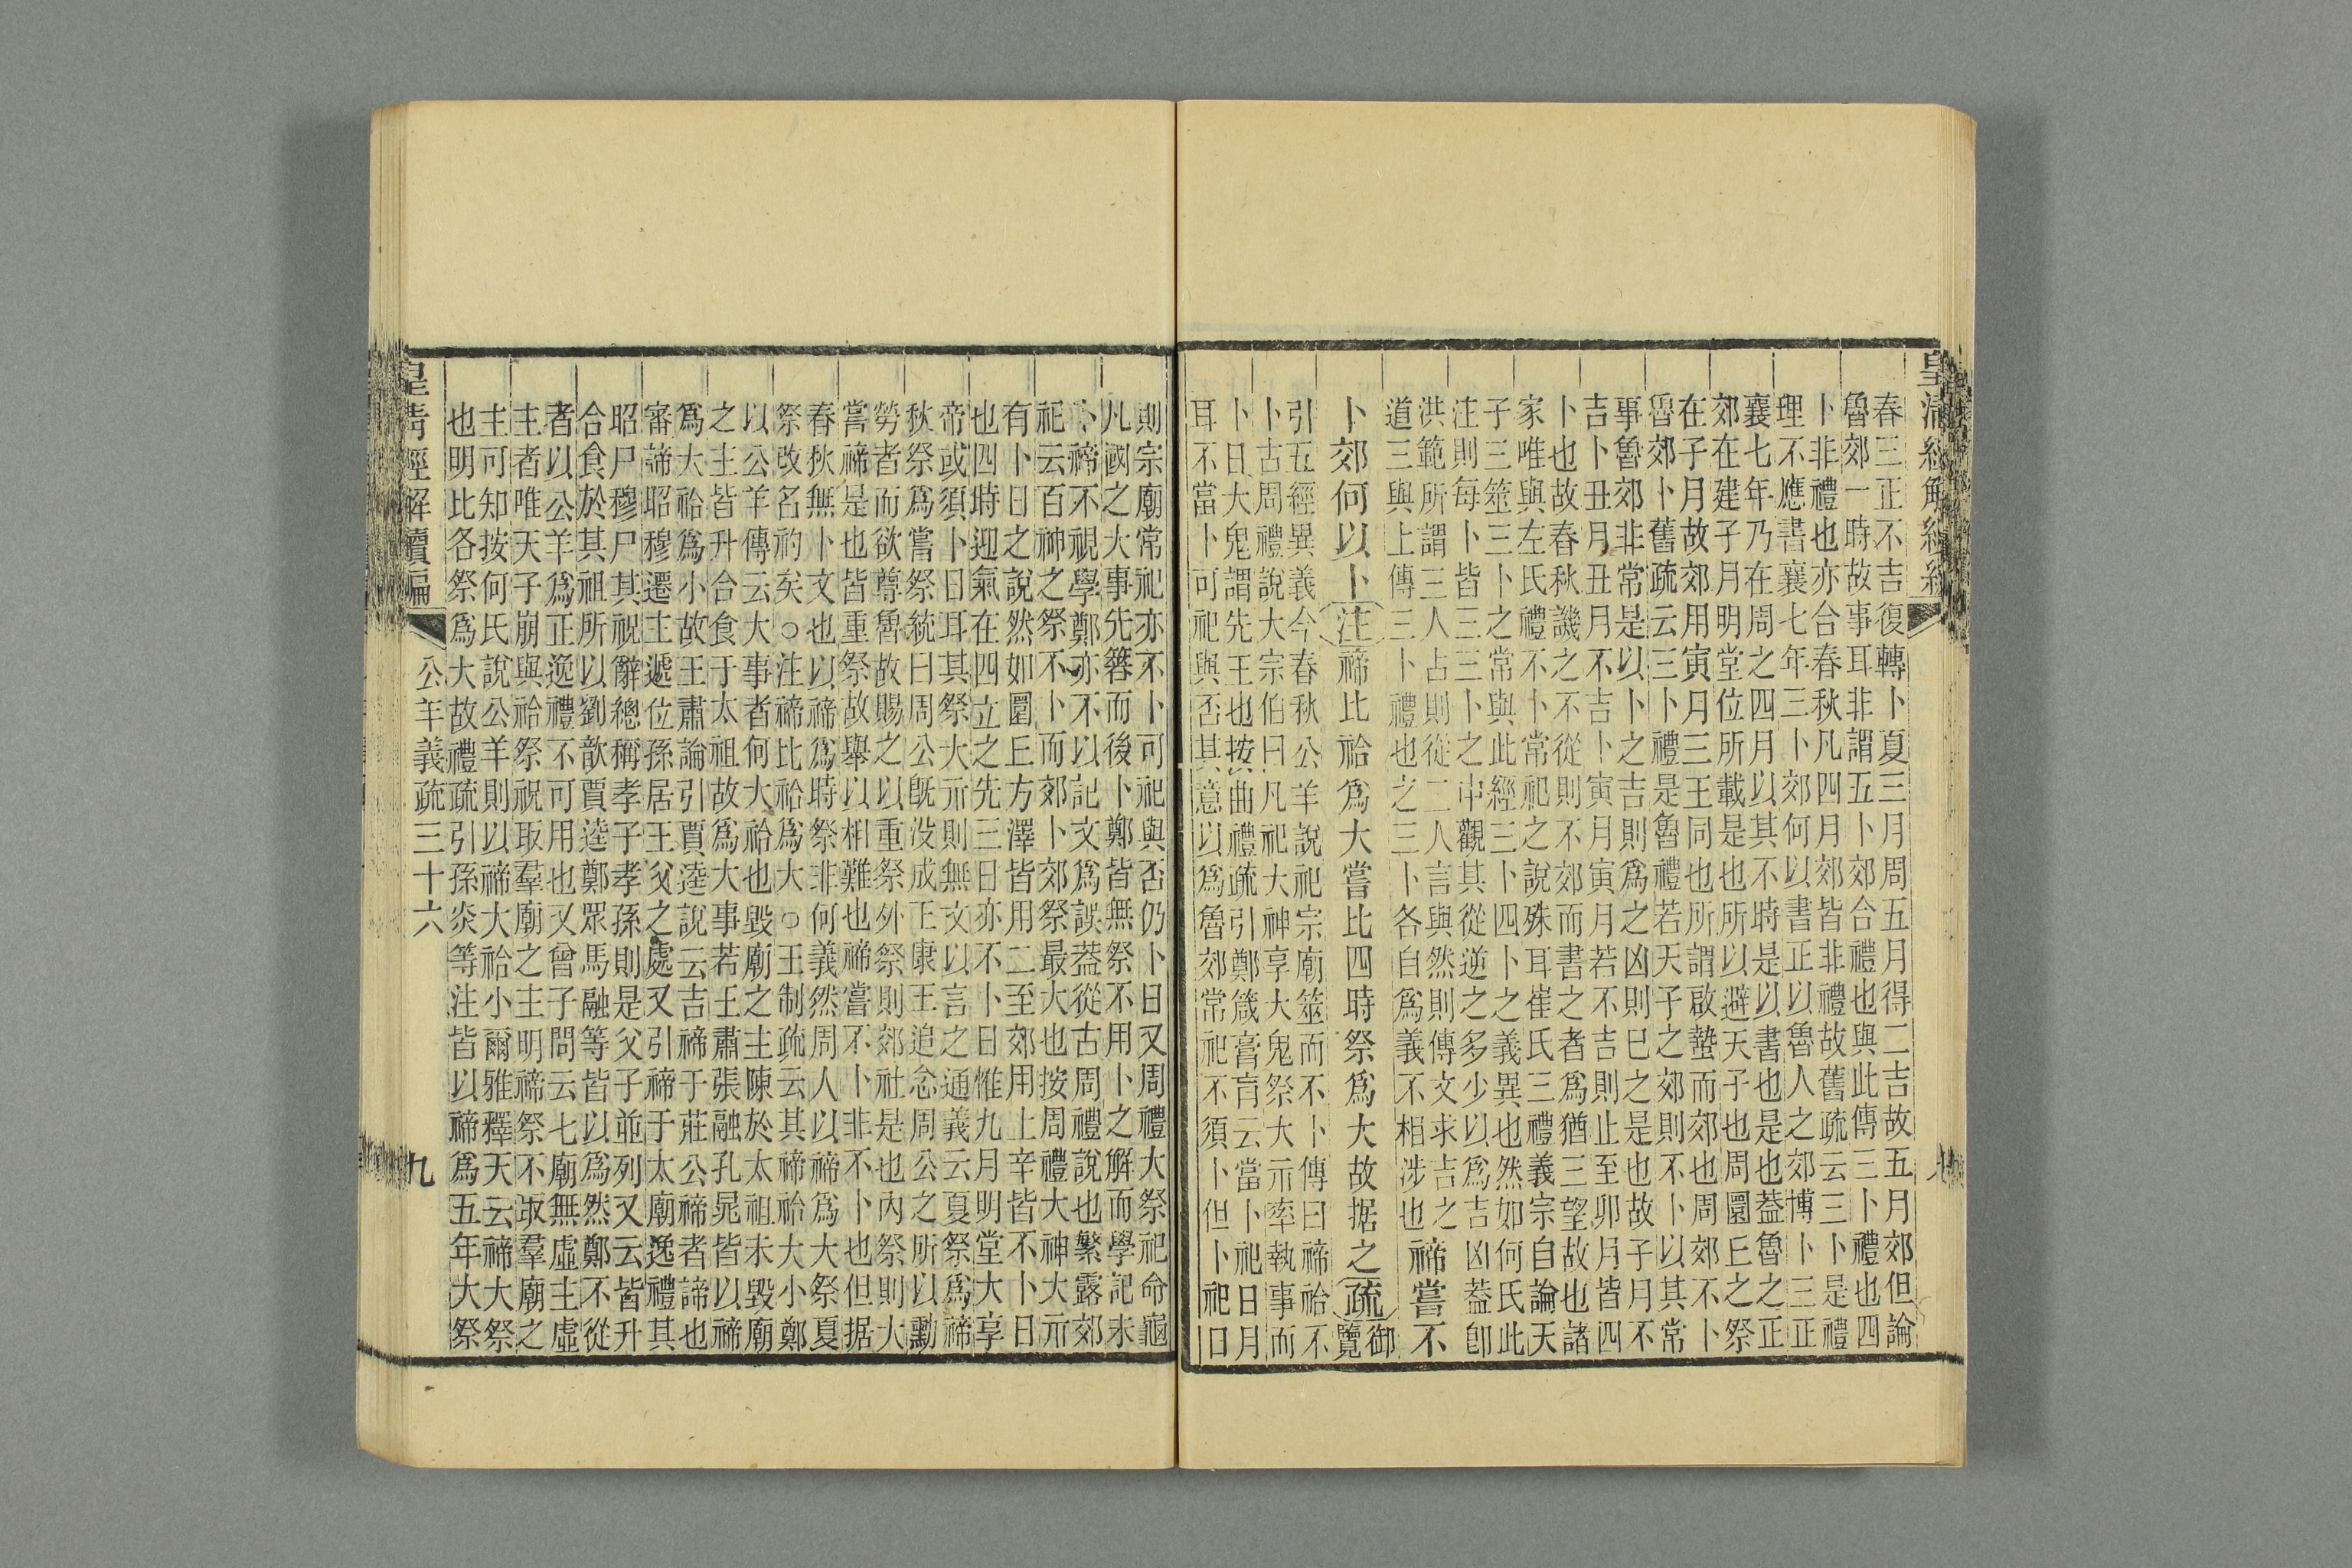 皇清經解續編
春三正不吉復轉卜夏三月周五月得二吉故五月郊但論
魯郊一時故事耳非謂五卜郊合禮也與此傳三卜禮也四
卜非禮也亦合春秋凡四月郊皆非禮故舊疏云三卜是禮
理不應書襄七年三卜郊何以書正以魯人之郊博卜三正
襄七年乃在周之四月以其不時是以書也是也葢魯之正
郊在建子月明堂位所載是也所以避天子也周圜丘之祭
在子月故郊用寅月三王同也所謂啟蟄而郊也周郊不卜
魯郊卜舊疏云三卜禮是魯禮若天子之郊則不卜以其常
事魯郊非常是以卜之吉則爲之凶則巳之是也故子月不
吉卜丑月丑月不吉卜寅月寅月若不吉則止至卯月皆四
卜也故春秋譏之不從則不郊而書之者爲猶三望故也諸
家唯與左氏禮不卜常祀之說殊耳崔氏三禮義宗自論天
子三筮三卜之常與此經三卜四卜之義異也然如何氏此
注則每卜皆三三卜之中觀其從逆之多少以爲吉凶葢卽
洪範所謂三人占則從二人言與然則傳文求吉之
道三與上傳三卜禮也之三卜各自爲義不相涉也
禘嘗不
卜郊何以卜注禘比祫爲大嘗比四時祭爲大故据之疏御覽
引五經異義今春秋公羊說祀宗廟筮而不卜傳曰禘祫不
卜古周禮說大宗伯曰凡祀大神享大鬼祭大示率執事而
卜日大鬼謂先王也按曲禮疏引鄭箴膏肓云當卜祀日月
耳不當卜可祀與否其意以爲魯郊常祀不須卜但卜祀日
則宗廟常祀亦不卜可祀與否仍卜日又周禮大祭祀命龜
凡國之大事先簭而後卜鄭皆無祭不用卜之解而學記未
卜禘不視學鄭亦不以記文爲誤葢從古周禮說也繁露郊
祀云百神之祭不卜而郊卜郊祭最大也按周禮大神大示
有卜日之說然如圜丘方澤皆用二至郊用上辛皆不卜日
也四時迎氣在四立之先三日亦不卜日惟九月明堂大享
帝或須卜日耳其祭大示則無文以言之通義云夏祭爲禘
秋祭爲嘗祭統曰周公旣沒成王康王追念周公之所以勳
勞者而欲尊魯故賜之以重祭外祭則郊社是也內祭則大
嘗禘是也皆重祭故舉以相難也禘嘗不卜非不卜也但据
春秋無卜文也以禘爲時祭非何義然周人以禘爲大祭夏
祭改名礿矣○注禘比祫爲大○王制疏云其禘祫大小鄭
以公羊傳云大事者何大祫也毀廟之主陳於太祖未毀廟
之主皆升合食于太祖故爲大事若王肅張融孔晁皆以禘
爲大祫爲小故王肅論引賈逵說云吉禘于莊公禘者諦也
審諦昭穆遷主遞位孫居王父之處又引禘于太廟逸禮其
昭尸穆尸其祝辭總稱孝子孝孫則是父子並列又云皆升
合食於其祖所以劉歆賈逵鄭眾馬融等皆以爲然鄭不從
者以公羊爲正逸禮不可用也又曾子問云七廟無虛主虛
主者唯天子崩與祫祭祝取羣廟之主明禘祭不取羣廟之
主可知按何氏說公羊則以禘大祫小爾雅釋天云禘大祭
也明比各祭爲大故禮疏引孫炎等注皆以禘爲五年大祭
皇清經解續編　公羊義疏三十六　九